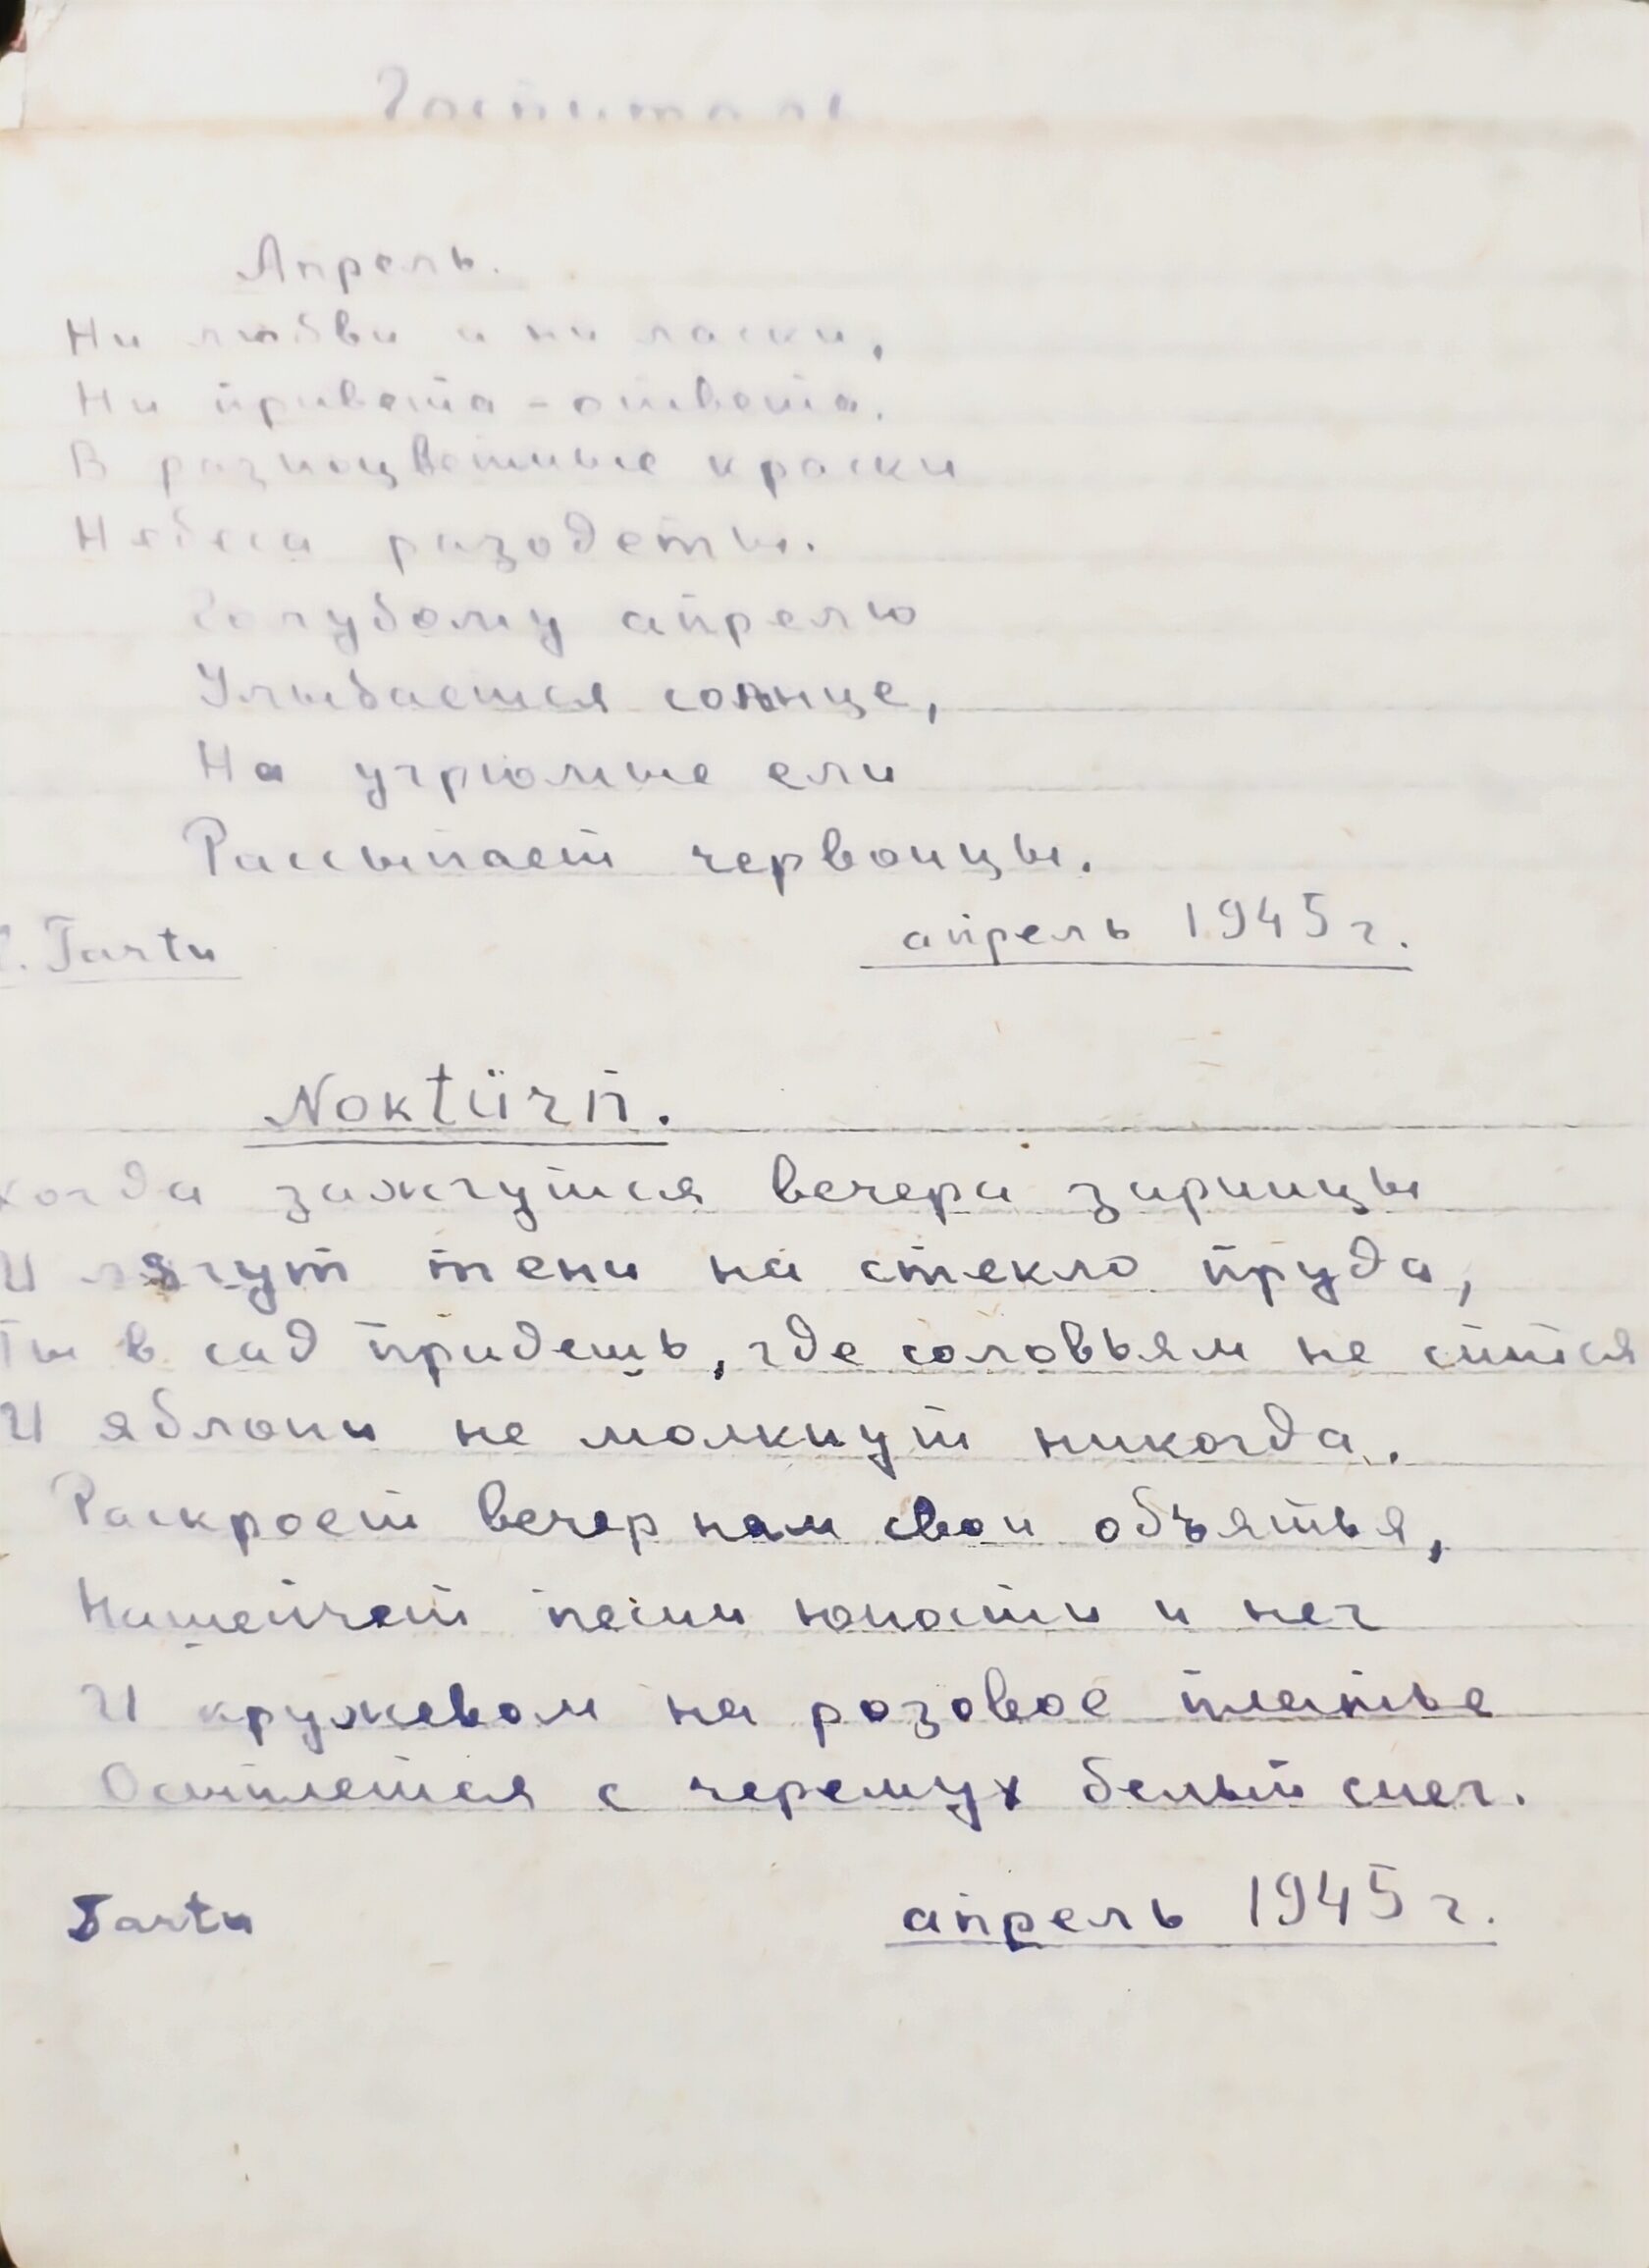 Госпиталь
Апрель.
Ни любви и ни ласки,
Ни привета-ответа.
В разноцветные краски
Небеса разодеты.
Голубому апрелю
Улыбается солнце,
На угрюмые ели
Рассыпает червонцы.
г. Tartu апрель 1945 г.
Noktürn.
Когда зажгутся вечера зарницы
И лягут тени на стекло пруда,
Ты в сад придешь, где соловьям не спится
И яблони не молкнут никогда.
Раскроет вечер нам свои объятья,
Нашепчет песни юности и нег
И кружевом на розовое платье
Осыплется с черемух белый снег.
Tartu апрель 1945 г.